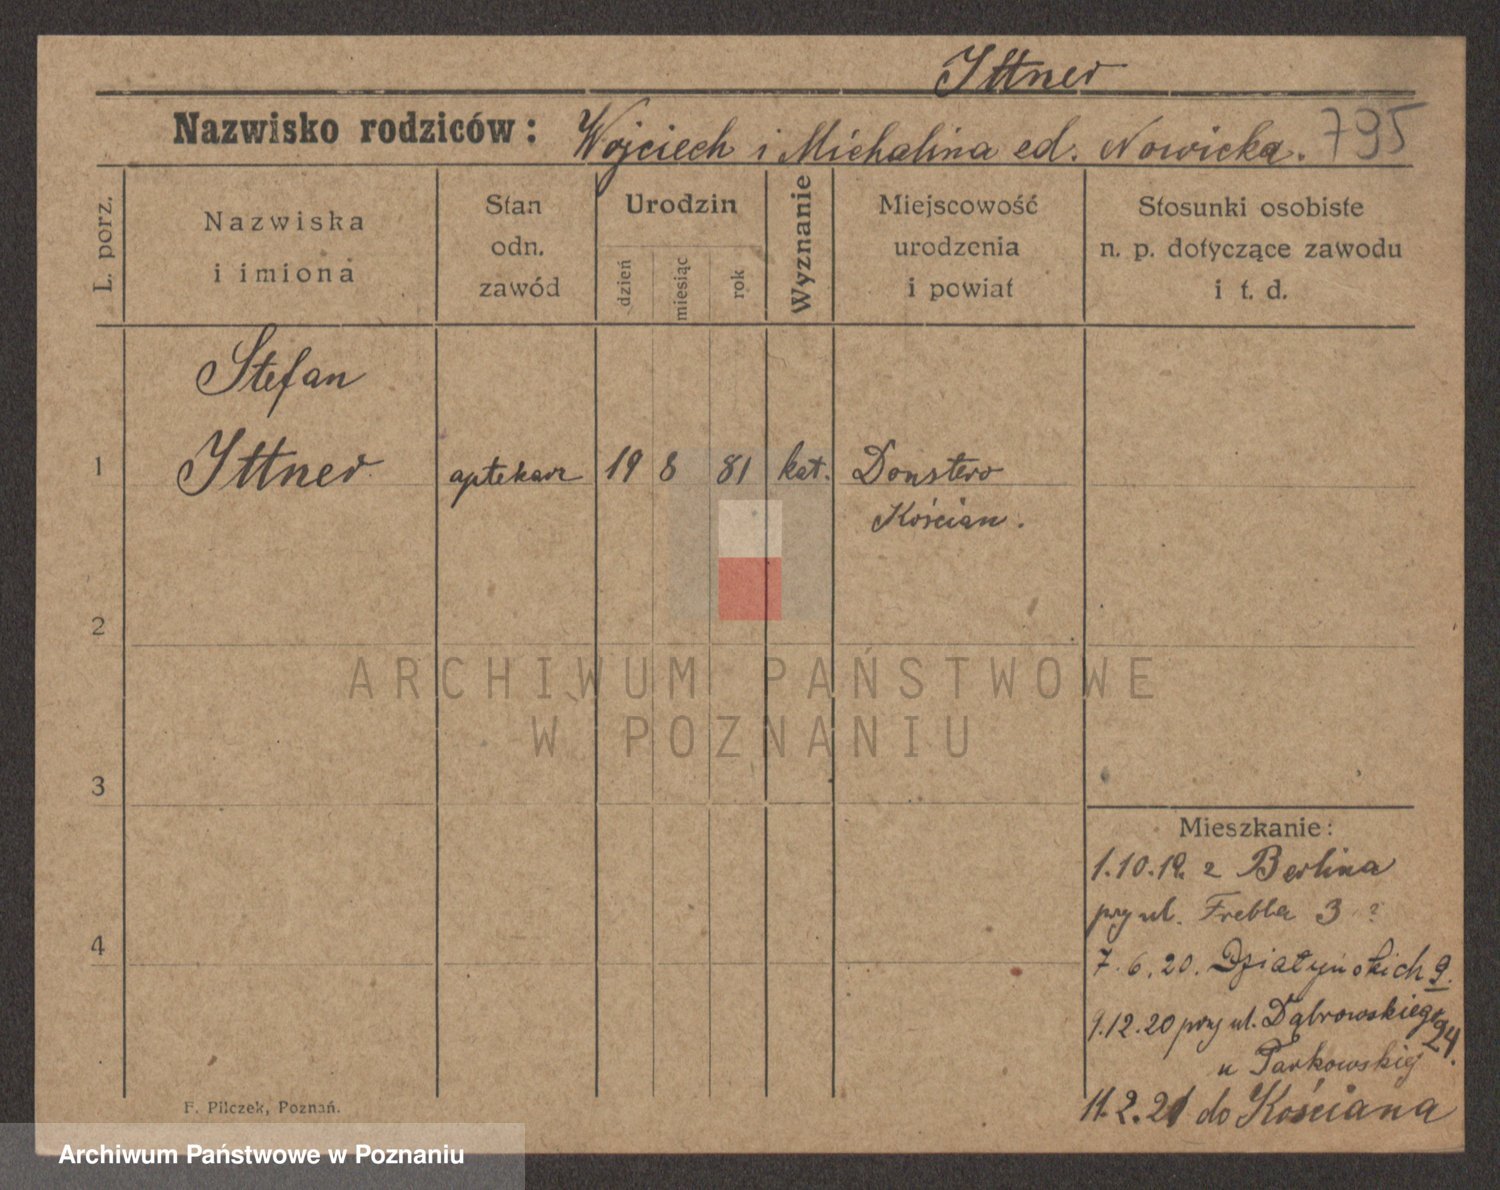 Ittner
Nazwisko rodziców: Wojciech i Michalina ed. Nowicka. 795
L. porz.
Nazwiska
i imiona
Stan
odn.
zawód
Urodzin
dzień
miesiąc
rok
Wyznanie
Miejscowość
urodzenia
i powiat
Stosunki osobiste
n. p. dotyczące zawodu
i t. d.
Stefan
1 Ittner aptekarz 19 8 81 kat.
Kościan.
2
ARCHIWUM PAŃSTWOWE
W POZNANIU
3
4
Mieszkanie:
1.10.19. z Berlina
przy ul. Frebla 3 ?
7.6.20. Działyńskich 9.
9.12.20 przy ul. Dąbrowskiego 24.
u Tarkowskiej
11.2.21 do Kościana
F. Pilczek, Poznań.
Archiwum Państwowe w Poznaniu